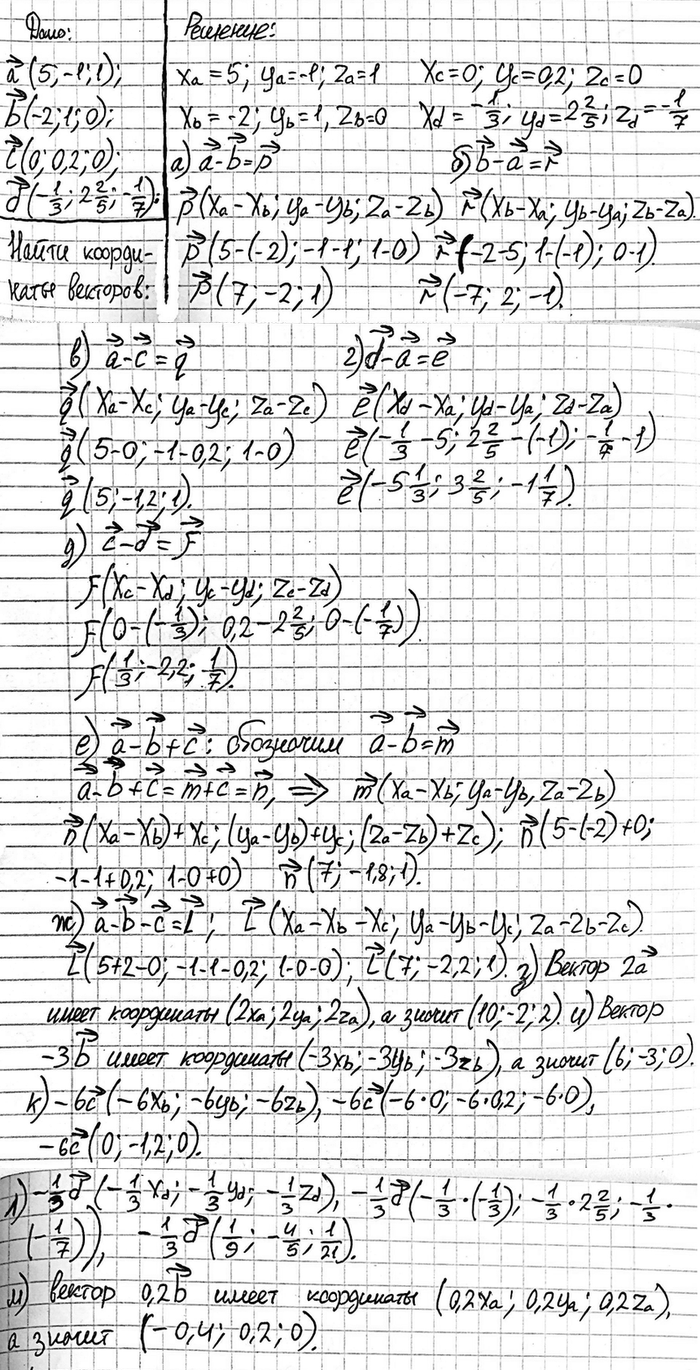 Дано: Решение:
a⃗ (5; -1; 1); xa = 5; ya = -1; za = 1 xc = 0; yc = 0,2; zc = 0
b⃗ (-2; 1; 0); xb = -2; yb = 1, zb = 0 xd = -1/3; yd = 2 2/5; zd = -1/7
c⃗ (0; 0,2; 0); а) a⃗ - b⃗ = p⃗ б) b⃗ - a⃗ = r⃗
d⃗ (-1/3; 2 2/5; -1/7). p⃗ (xa - xb; ya - yb; za - zb) r⃗ (xb - xa; yb - ya; zb - za).
Найти коорди- p⃗ (5 - (-2); -1 - 1; 1 - 0) r⃗ (-2 - 5; 1 - (-1); 0 - 1).
наты векторов: p⃗ (7; -2; 1) r⃗ (-7; 2; -1).
в) a⃗ - c⃗ = q⃗ г) d⃗ - a⃗ = e⃗
q⃗ (xa - xc; ya - yc; za - zc) e⃗ (xd - xa; yd - ya; zd - za)
q⃗ (5 - 0; -1 - 0,2; 1 - 0) e⃗ (-1/3 - 5; 2 2/5 - (-1); -1/7 - 1)
q⃗ (5; -1,2; 1). e⃗ (-5 1/3; 3 2/5; -1 1/7).
д) c⃗ - d⃗ = f⃗
f (xc - xd; yc - yd; zc - zd)
f (0 - (-1/3); 0,2 - 2 2/5; 0 - (-1/7)).
f (1/3; -2,2; 1/7).
е) a⃗ - b⃗ + c⃗: обозначим a⃗ - b⃗ = m⃗
a⃗ - b⃗ + c⃗ = m⃗ + c⃗ = n⃗, ⇒ m⃗ (xa - xb; ya - yb, za - zb)
n⃗ (xa - xb) + xc; (ya - yb) + yc; (za - zb) + zc); n⃗ (5 - (-2) + 0;
-1 - 1 + 0,2; 1 - 0 + 0) n⃗ (7; -1,8; 1).
ж) a⃗ - b⃗ - c⃗ = L⃗; L⃗ (xa - xb - xc; ya - yb - yc; za - zb - zc).
L⃗ (5 + 2 - 0; -1 - 1 - 0,2; 1 - 0 - 0); L⃗ (7; -2,2; 1). з) Вектор 2a⃗
имеет координаты (2xa; 2ya; 2za), а значит (10; -2; 2). и) Вектор
-3b⃗ имеет координаты (-3xb; -3yb; -3zb), а значит (6; -3; 0).
к) -6c⃗ (-6xb; -6yb; -6zb), -6c⃗ (-6·0; -6·0,2; -6·0),
-6c⃗ (0; -1,2; 0).
л) -1/3 d⃗ (-1/3 xd; -1/3 yd; -1/3 zd), -1/3 d⃗ (-1/3 · (-1/3); -1/3 · 2 2/5; -1/3 ·
(-1/7)), -1/3 d⃗ (1/9; -4/5; 1/21).
м) вектор 0,2b⃗ имеет координаты (0,2xa; 0,2ya; 0,2za),
а значит (-0,4; 0,2; 0).